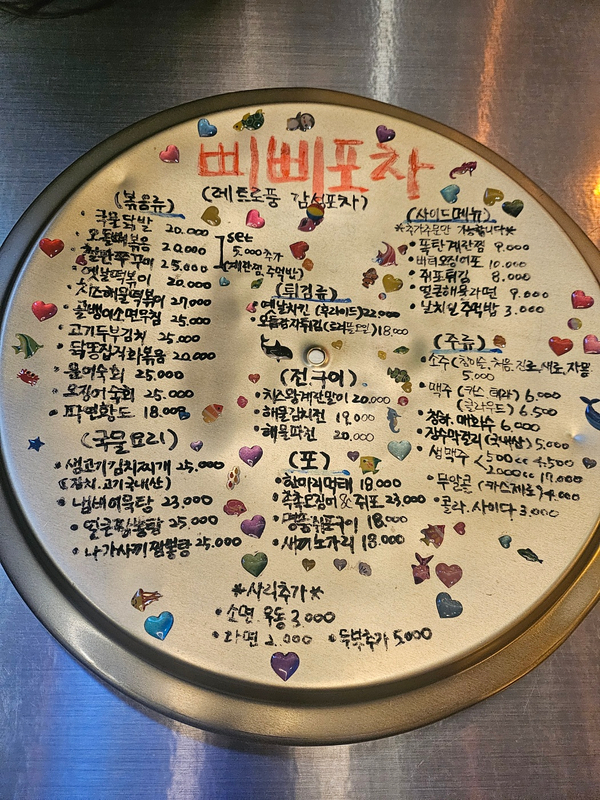 삐삐포차
(레트로풍 감성포차)
(볶음류)
국물닭발 20.000
오돌뼈볶음 20.000
쭈꾸미 25.000
set
5.000 추가
(계란찜, 주먹밥)
옛날떡볶이 20.000
치즈해물떡볶이 27.000
골뱅이소면무침 25.000
고기두부김치 25.000
닭똥집야채볶음 20.000
문어숙회 25.000
오징어숙회 25.000
파면황도 18.000
(국물요리)
생고기김치찌개 25.000
(김치.고기국내산)
냄비어묵탕 23.000
얼큰짬뽕탕 25.000
나가사끼짬뽕탕 25.000
(튀김류)
옛날치킨 (후라이드) 22.000
모듬감자튀김 18.000
(전.구이)
치즈왕계란말이 20.000
해물김치전 19.000
해물파전 20.000
(포)
한마리먹태 18.000
촉촉오징어 & 쥐포 23.000
명품쉬포구이 18.000
새끼노가리 18.000
(사이드메뉴)
*추가주문만 가능합니다*
폭탄계란찜 9.000
버터오징어포 10.000
쥐포튀김 8.000
얼큰해물라면 9.000
날치알주먹밥 3.000
(주류)
소주 (참이슬, 처음, 진로, 새로, 자몽
5.000
맥주 (카스 테라) 6.000
(클라우드) 6.500
청하. 매화수 6.000
장수막걸리 (국내산) 5.000
생맥주 <500cc 4.500
2000cc 17.000
무알콜 (카스제로) 4.000
콜라. 사이다 3.000
*사리추가*
소면 우동 3.000
라면 2.000
두부추가 5.000